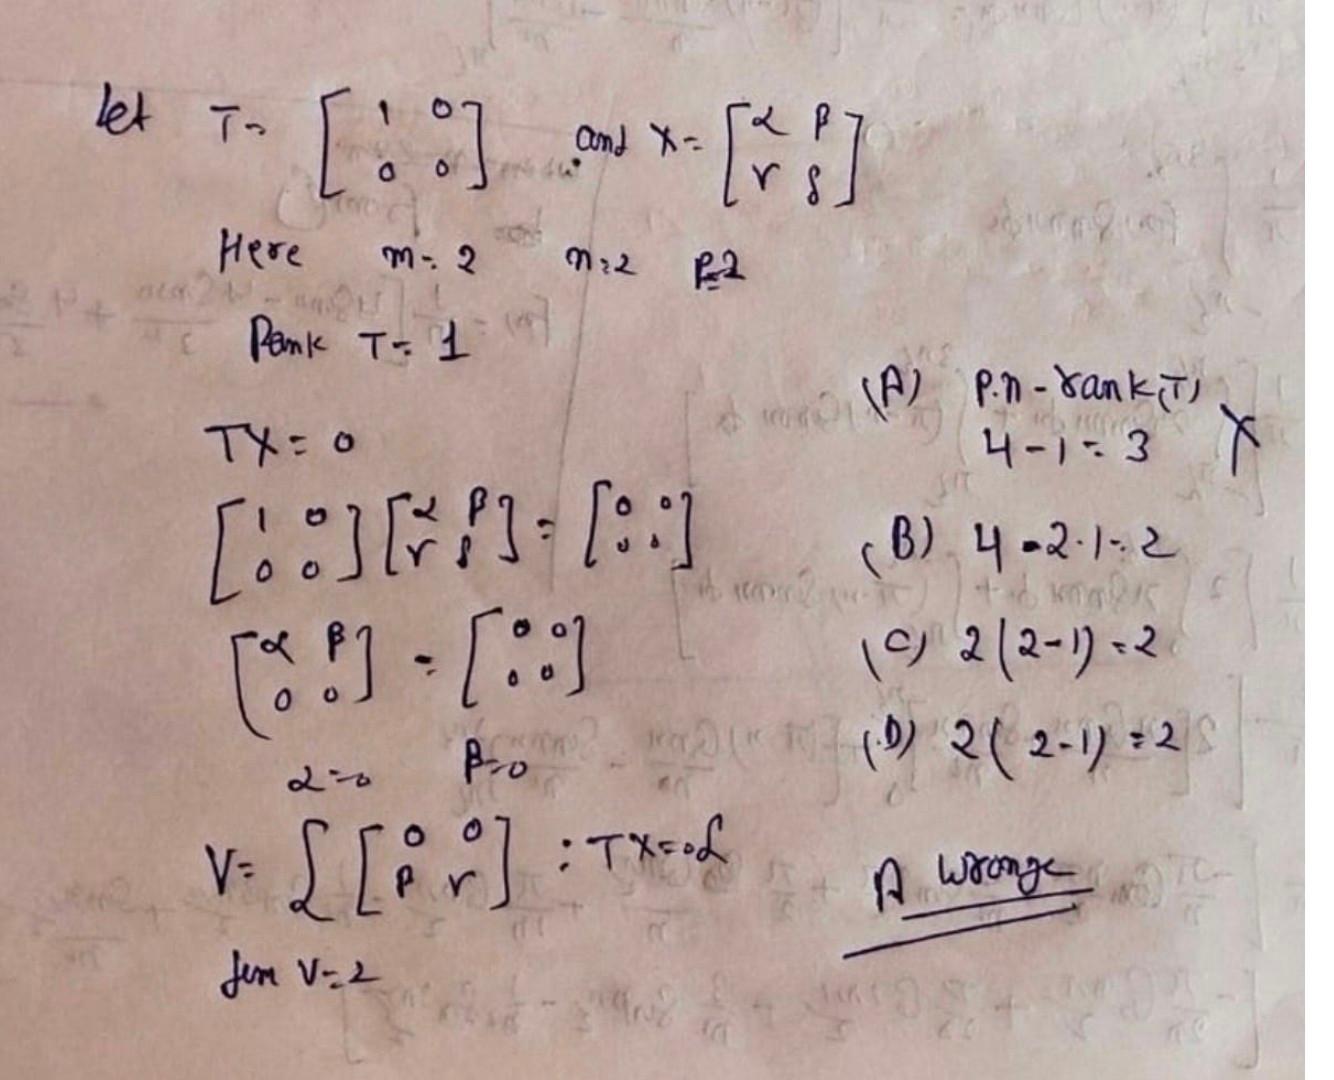 let T= [ 1 0 0 0 ] and X= [ α β γ δ ]
Here m=2 n=2 P=2
Rank T=1
TX=0
[ 1 0 0 0 ] [ α β γ δ ] = [ 0 0 0 0 ]
[ α β 0 0 ] = [ 0 0 0 0 ]
α=0 β=0
V= { [ 0 0 β γ ] : TX=0 }
dim V=2
(A) P.n-rank(T)
4-1=3 X
(B) 4-2·1=2
(C) 2(2-1)=2
(D) 2(2-1)=2
A wronge